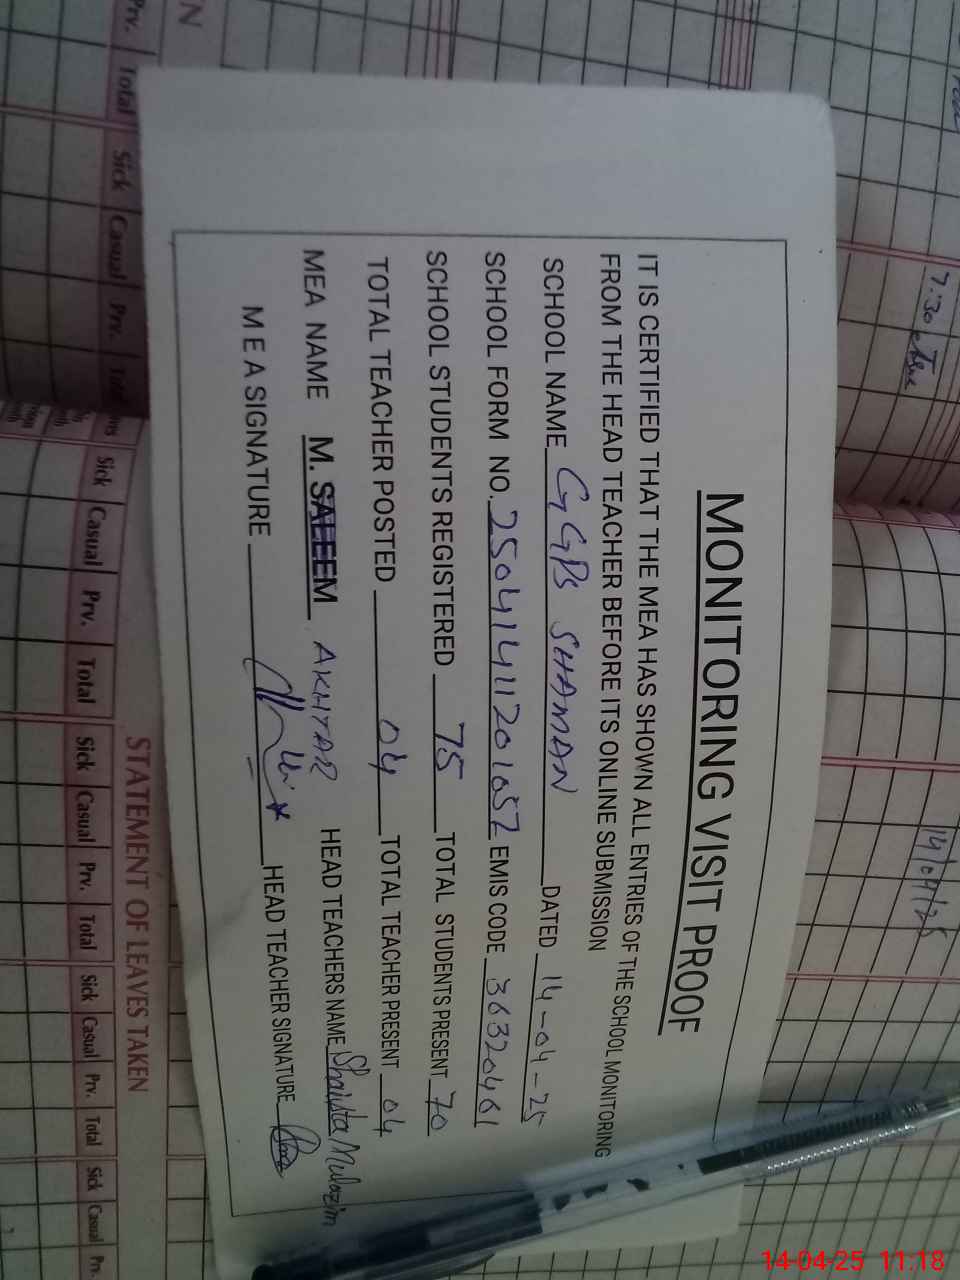 MONITORING VISIT PROOF
IT IS CERTIFIED THAT THE MEA HAS SHOWN ALL ENTRIES OF THE SCHOOL MONITORING
FROM THE HEAD TEACHER BEFORE ITS ONLINE SUBMISSION
SCHOOL NAME GGPS SHAMAN DATED 14-04-25
SCHOOL FORM NO. 25041411201052 EMIS CODE 36320461
SCHOOL STUDENTS REGISTERED 75 TOTAL STUDENTS PRESENT 70
TOTAL TEACHER POSTED 04 TOTAL TEACHER PRESENT 04
MEA NAME M. SALEEM AKHTAR HEAD TEACHERS NAME Shaista Mulazim
M E A SIGNATURE HEAD TEACHER SIGNATURE
7:30
14/04/25
Prv. Total Sick Casual Prv. Total
Sick Casual Prv. Total Sick Casual Prv. Total Sick Casual Prv. Total Sick Casual Prv.
STATEMENT OF LEAVES TAKEN
14-04-25 11:18